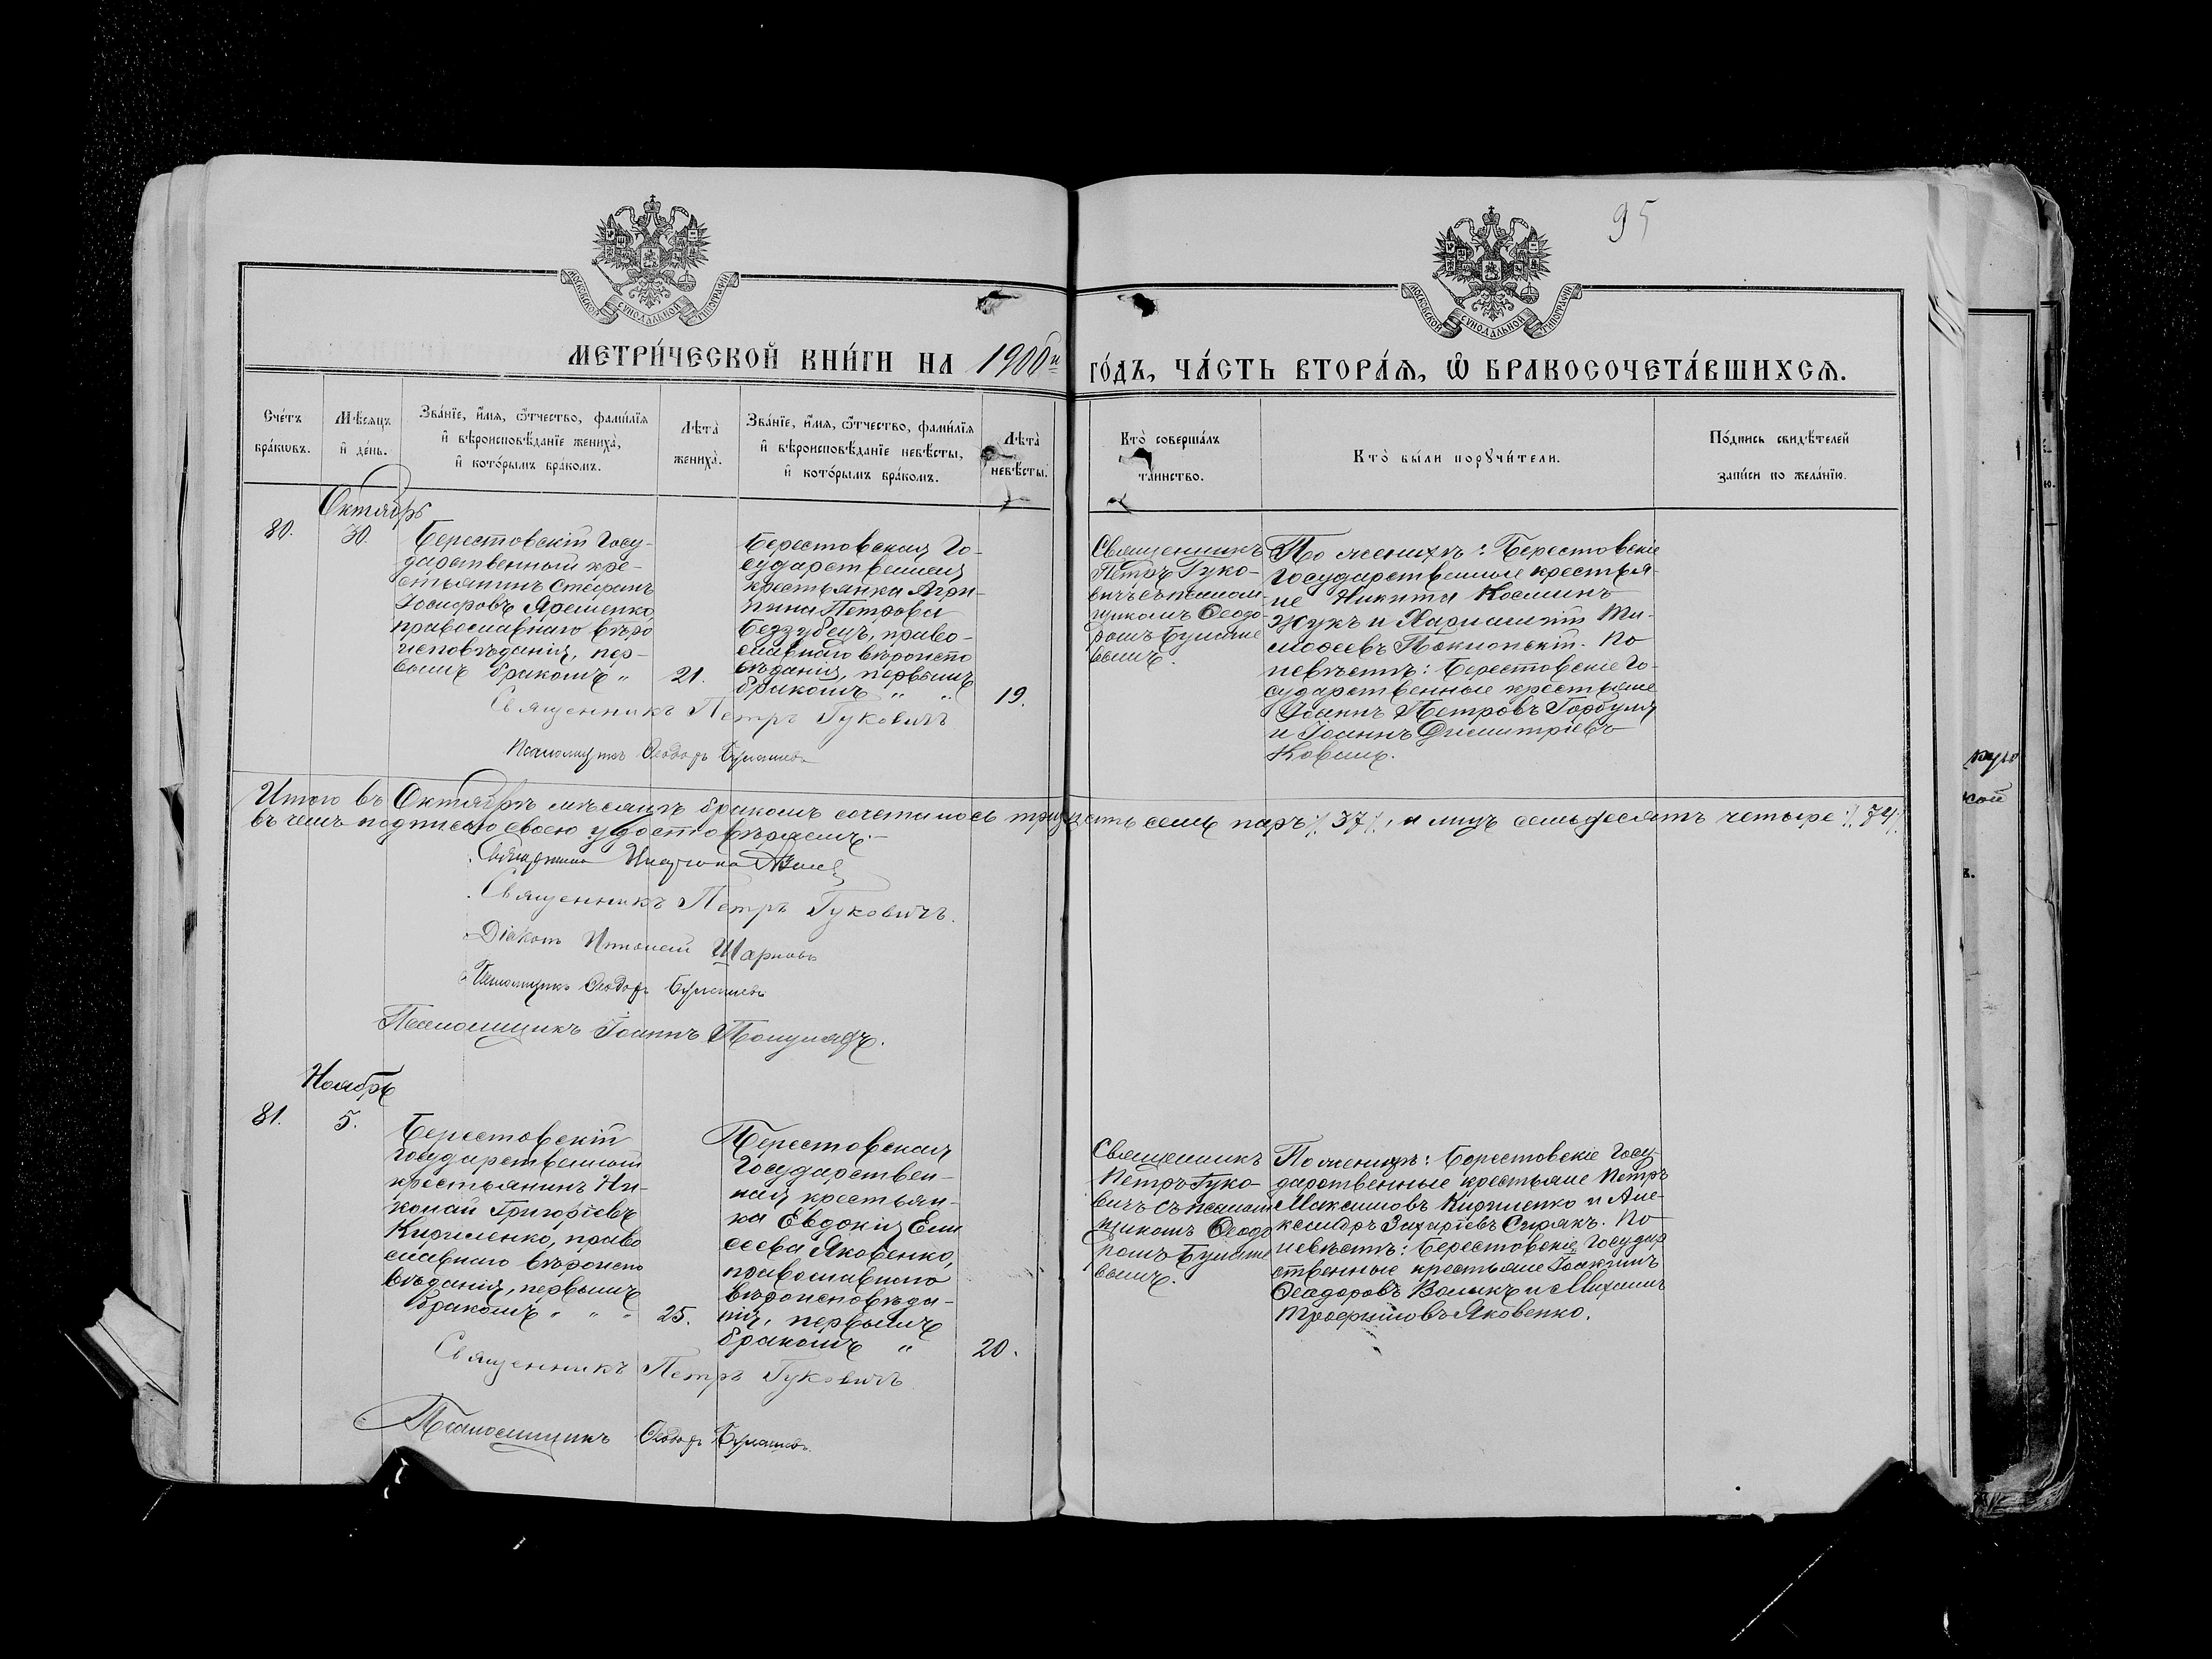 95
МОСКОВСКОЙ СѴНОДАЛЬНОЙ ТИПОГРАФІИ
МОСКОВСКОЙ СѴНОДАЛЬНОЙ ТИПОГРАФІИ
МЕТРИ́ЧЕСКОЙ КНИ́ГИ НА 1900й ГО́ДЪ, ЧА́СТЬ ВТОРА́Я, Ѽ БРАКОСОЧЕТА́ВШИХСЯ.
Сче́тъ
бра́кѡвъ.
Мѣ́сяцъ
и҆ де́нь.
Зва́нїе, и҆́мя, ѻ҆́тчество, фами́лїя
и҆ вѣроисповѣ́данїе жениха̀,
и҆ кото́рымъ бра́комъ.
Лѣта̀
жениха̀.
Зва́нїе, и҆́мя, ѻ҆́тчество, фами́лїя
и҆ вѣроисповѣ́данїе невѣ́сты,
и҆ кото́рымъ бра́комъ.
Лѣта̀
невѣ́сты.
Кто̀ соверша́лъ
та́инство.
Кто̀ бы́ли порꙋчи́тели.
По́дпись свидѣ́телей
за́писи по жела́нїю.
Октябрь
80.
30.
Берестовскій Госу-
дарственный кре-
стьянинъ Стефанъ
Іосифовъ Яременко
православнаго вѣро
исповѣданія, пер-
вымъ бракомъ „
21.
Берестовская Го-
сударственная
крестьянка Агри-
пина Петрова
Беззубецъ, право-
славнаго вѣроиспо
вѣданія, первымъ
бракомъ „ „
19.
Священникъ
Петръ Гуко-
вичъ съ псалом
щикомъ Ѳеодо-
ромъ
По женихѣ: Берестовскіе
Государственные крестья-
не Никита Косминъ
Жукъ и Харлампій Ти-
моѳеевъ По
невѣстѣ: Берестовскіе Го-
сударственные крестьяне
Іоаннъ Петровъ Горбуля
и Іоаннъ Димитріевъ
Коваль.
Священникъ Петръ Гуковичъ
Псаломщикъ Ѳеодоръ
Итого въ Октябрѣ мѣсяцѣ бракомъ сочеталось тридцать семь паръ ٪ 37 ٪, и лицъ семьдесятъ четыре ٪ 74 ٪
въ чемъ подписью своею удостовѣряемъ:
Священникъ
Священникъ Петръ Гуковичъ.
Діаконъ Шарковъ
Псаломщикъ Ѳеодоръ
Псаломщикъ Іоаннъ
Ноябрь
81.
5.
Берестовскій
Государственный
крестьянинъ Ни-
колай Григоріевъ
Кириленко, право
славнаго вѣроиспо
вѣданія, первымъ
бракомъ „ „ „
25.
Берестовская
Государствен-
ная крестьян-
ка Евдокія Ели
сеева Яковенко,
православнаго
вѣроисповѣда-
нія, первымъ
бракомъ „
20.
Священникъ
Петръ Гуко
вичъ съ псалом
щикомъ Ѳеодо
ромъ
По женихѣ: Берестовскіе Госу-
дарственные крестьяне Петръ
Максимовъ Кириленко и Але-
ксандръ Захаріевъ Сирякъ. По
невѣстѣ: Берестовскіе Государ
ственные крестьяне Іоакимъ
Ѳеодоровъ Волыкъ и Михаилъ
Трофимовъ Яковенко.
Священникъ Петръ Гуковичъ
Псаломщикъ Ѳеодоръ